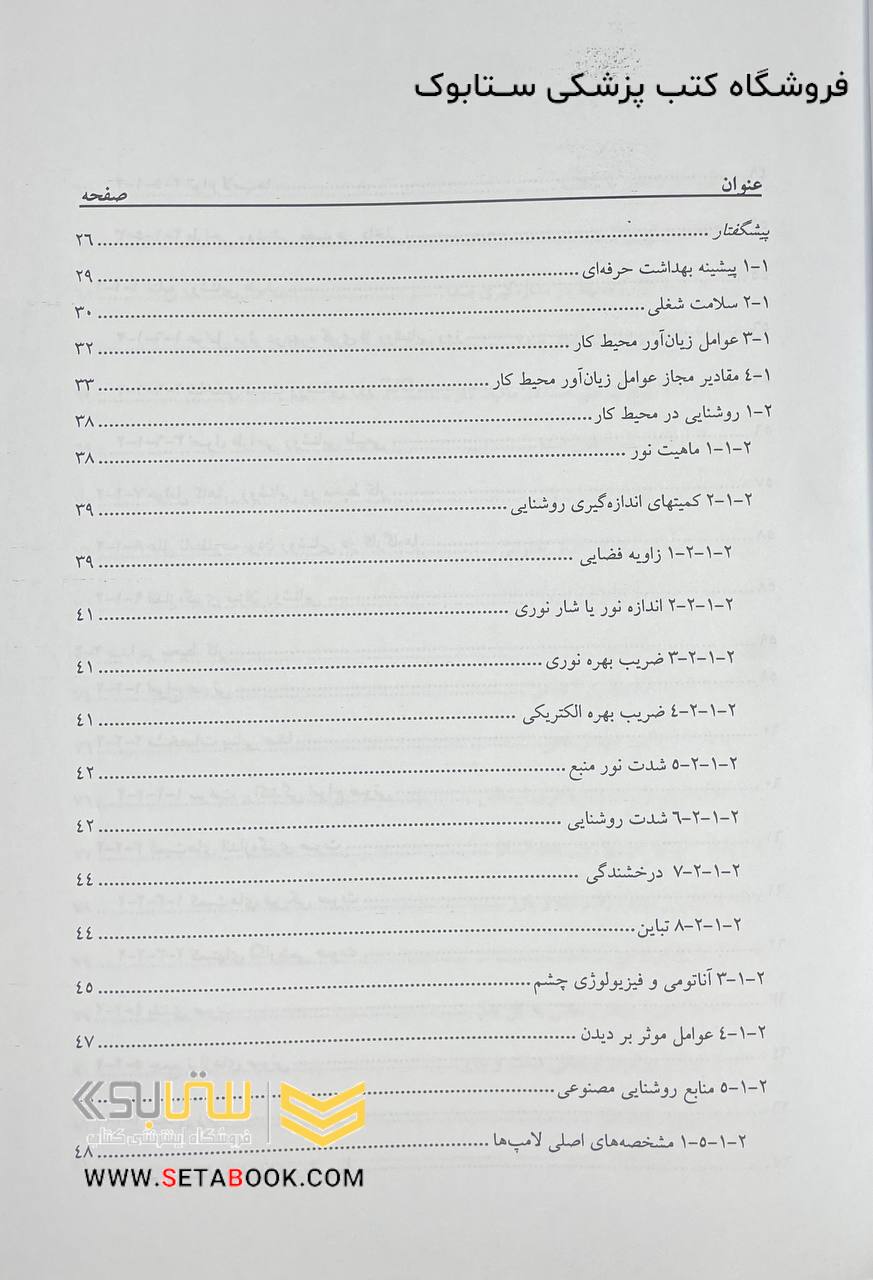 فروشگاه کتب پزشکی ستابوک
عنوان صفحه
پیشگفتار ........ ۲۶
۱-۱ پیشینه بهداشت حرفه‌ای ........ ۲۹
۱-۲ سلامت شغلی ........ ۳۰
۱-۳ عوامل زیان‌آور محیط کار ........ ۳۲
۱-٤ مقادیر مجاز عوامل زیان‌آور محیط کار ........ ۳۳
۲-۱ روشنایی در محیط کار ........ ۳۸
۲-۱-۱ ماهیت نور ........ ۳۸
۲-۱-۲ کمیتهای اندازه‌گیری روشنایی ........ ۳۹
۲-۱-۲-۱ زاویه فضایی ........ ۳۹
۲-۱-۲-۲ اندازه نور یا شار نوری ........ ٤۱
۲-۱-۲-۳ ضریب بهره نوری ........ ٤۱
۲-۱-۲-٤ ضریب بهره الکتریکی ........ ٤۱
۲-۱-۲-۵ شدت نور منبع ........ ٤۲
۲-۱-۲-۶ شدت روشنایی ........ ٤۲
۲-۱-۲-۷ درخشندگی ........ ٤٤
۲-۱-۲-۸ تباین ........ ٤٤
۲-۱-۳ آناتومی و فیزیولوژی چشم ........ ٤۵
۲-۱-٤ عوامل موثر بر دیدن ........ ٤۷
۲-۱-۵ منابع روشنایی مصنوعی ........
۲-۱-۵-۱ مشخصه‌های اصلی لامپ‌ها ........ ٤۸
ستابوک
فروشگاه اینترنتی کتاب
WWW.SETABOOK.COM